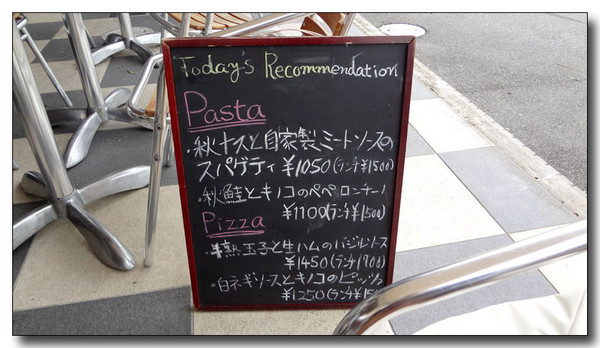 Today's Recommendation
Pasta
・秋ナスと自家製ミートソースの
スパゲティ ¥1050(ランチ¥1500)
・秋鮭とキノコのペペロンチーノ
¥1100(ランチ¥1500)
Pizza
・半熟玉子と生ハムのバジルソース
¥1450(ランチ1900)
・白ネギソースとキノコのピッツァ
¥1250(ランチ